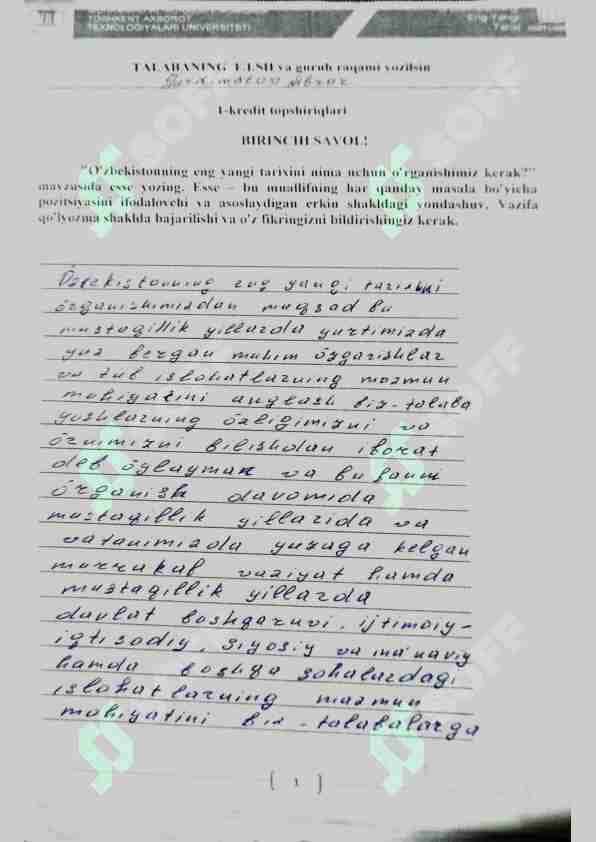 TOSHKENT AXBOROT
TEXNOLOGIYALARI UNIVERSITETI
Eng Yangi
Tarixi
TALABANING F.I.SH va guruh raqami yozilsin
1-kredit topshiriqlari
BIRINCHI SAVOL!
"O'zbekistonning eng yangi tarixini nima uchun o'rganishimiz kerak?"
mavzusida esse yozing. Esse – bu muallifning har qanday masala bo'yicha
pozitsiyasini ifodalovchi va asoslaydigan erkin shakldagi yondashuv. Vazifa
qo'lyozma shaklda bajarilishi va o'z fikringizni bildirishingiz kerak.
Özbekistonning eng yangi tarixini
örganishimizdan maqsad bu
mustaqillik yillarda yurtimizda
yuz bergan muhim özgarishlar
va tub islohatlarning mazmun
mohiyatini anglash biz-talaba
yoshlarning özligimizni va
özimizni bilishdan iborat
deb öylayman va bu fanni
örganish davomida
mustaqillik yillarida va
vatanimizda yuzaga kelgan
murrakab vaziyat hamda
mustaqillik yillarda
davlat boshqaruvi, ijtimoiy-
iqtisodiy, siyosiy va ma'naviy
hamda boshqa sohalardagi
islohatlarning mazmun
mohiyatini biz-talabalarga
( 1 )
SOFF
SOFF
SOFF
SOFF
SOFF
SOFF